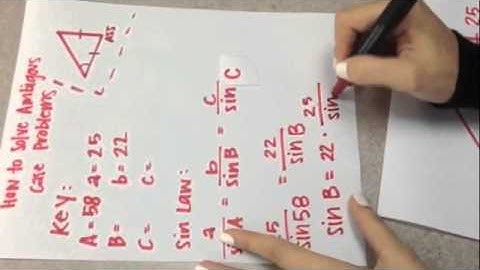 How to Solve Ambigous
Case Problems!
ASS
Key:
A=58 a=25
B= b=22
C= c=
Sin Law:
a b c
sinA = sinB = sinC
5 22
sin58 = sinB
25
sinB = 22 · sin
25